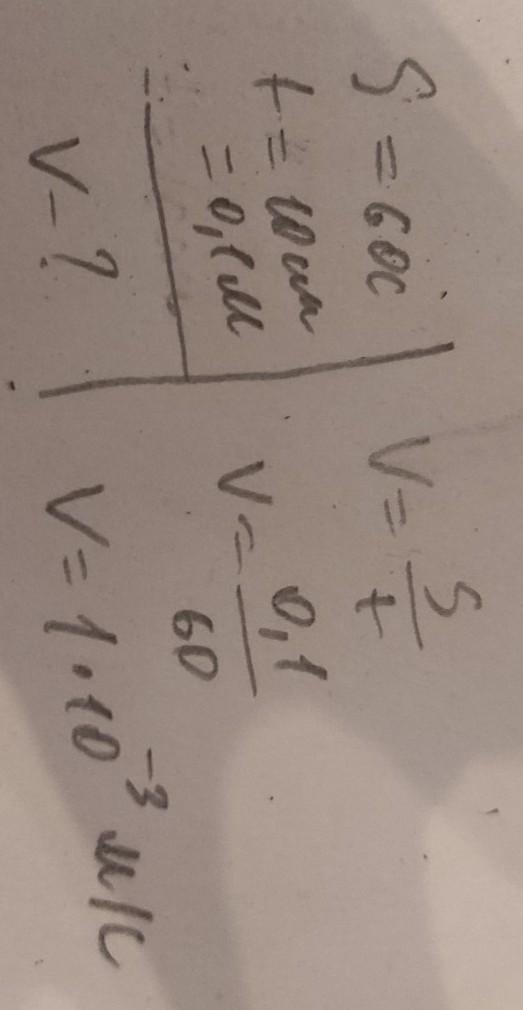 S = 60с
t = 10см
= 0,1м
V - ?
V = S/t
V = 0,1/60
V = 1·10⁻³ м/с